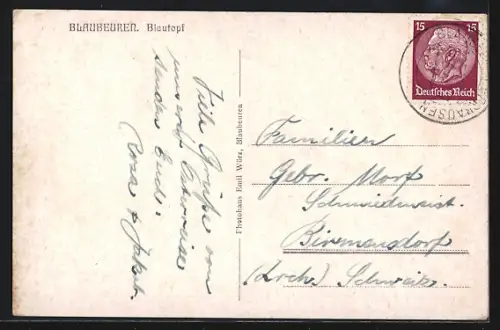 BLAUBEUREN. Blautopf
Viele Grüsse von
unserer Osterreise
senden Euch:
Rosa & Jakob.
Photohaus Emil Würz, Blaubeuren
15 15
Deutsches Reich
HAUSEN
Familien
Gebr. Morf
Schmiedmeist.
Birmensdorf
(Zrch) Schweiz.